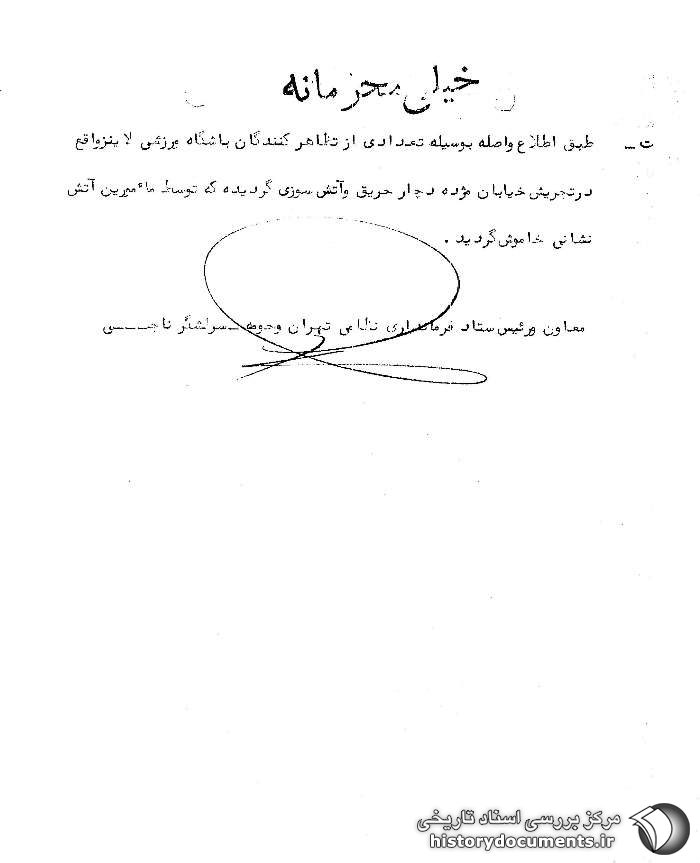 خیلی محرمانه
ت ـ طبق اطلاع واصله بوسیله تعدادی از تظاهر کنندگان باشگاه ورزشی لاینزواقع
درتجریش خیابان مژده دچار حریق وآتش سوزی گردیده که توسط مأمورین آتش
نشانی خاموش گردید .
معاون ورئیس ستاد فرمانداری نظامی تهران وحومه ـ سرلشگر ناجـــی
مرکز بررسی اسناد تاریخی
historydocuments.ir